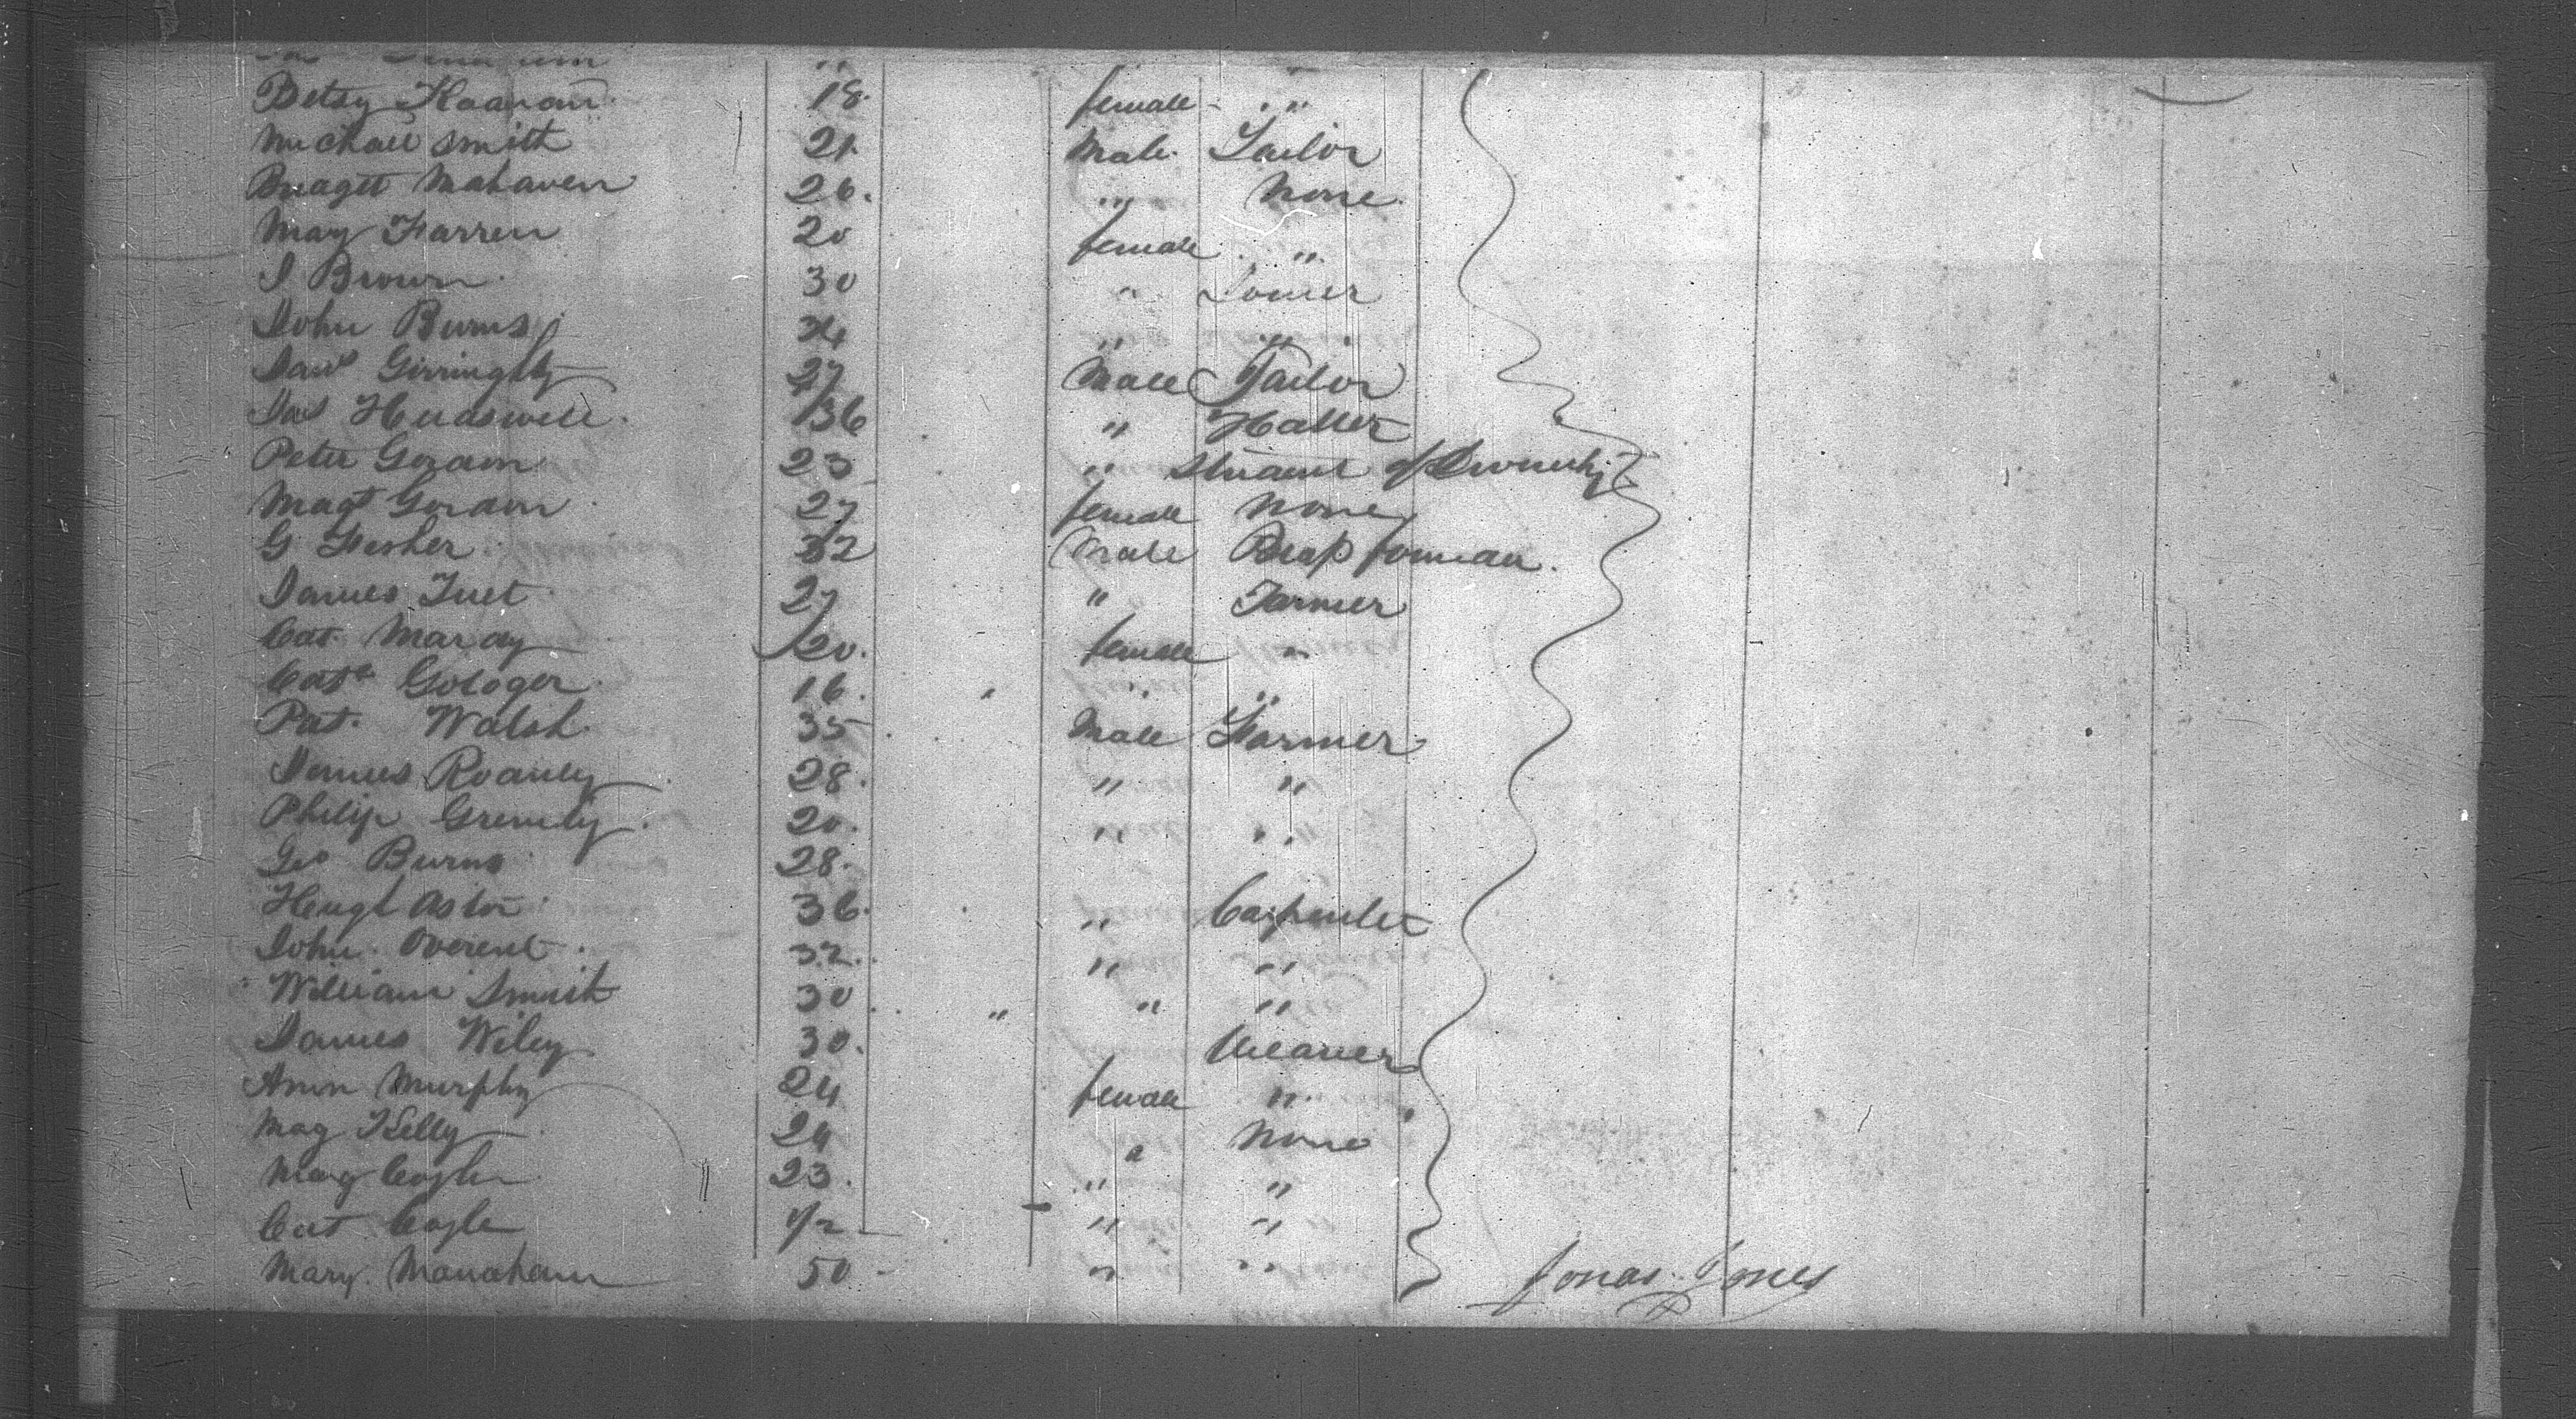 Betsy 18. female - " "
Michael Smith 21. Male. Tailor
Bridget Mahaven 26. " None.
May Farren 20 female. "
J Brown 30 " Joiner
John Burns 24 " "
27 Male Tailor
Jas 36 " Hatter
Peter Goram 23 " Student of Divinity
Magt Goram 27 female None
G. Fisher 32 Male founder.
James Tuet 27 " Farmer
Cat. Maray 20. female "
Cath Gologer. 16. " "
Pat. Walsh. 35 Male Farmer
James Roanly 28. " "
Philip Gremly. 20. " "
Geo Burns 28.
Hengh Astor 36. " Carpenter
John. Overent. 32. " "
William Smith 30. " " "
James Wiley 30. Weaver
Ann Murphy 24 female "
Mag Kelly 24 " None
Mag Coyle 23. " "
Cat Coyle 1/2 " "
Mary. Monaham 50 - " "
Jonas Jones